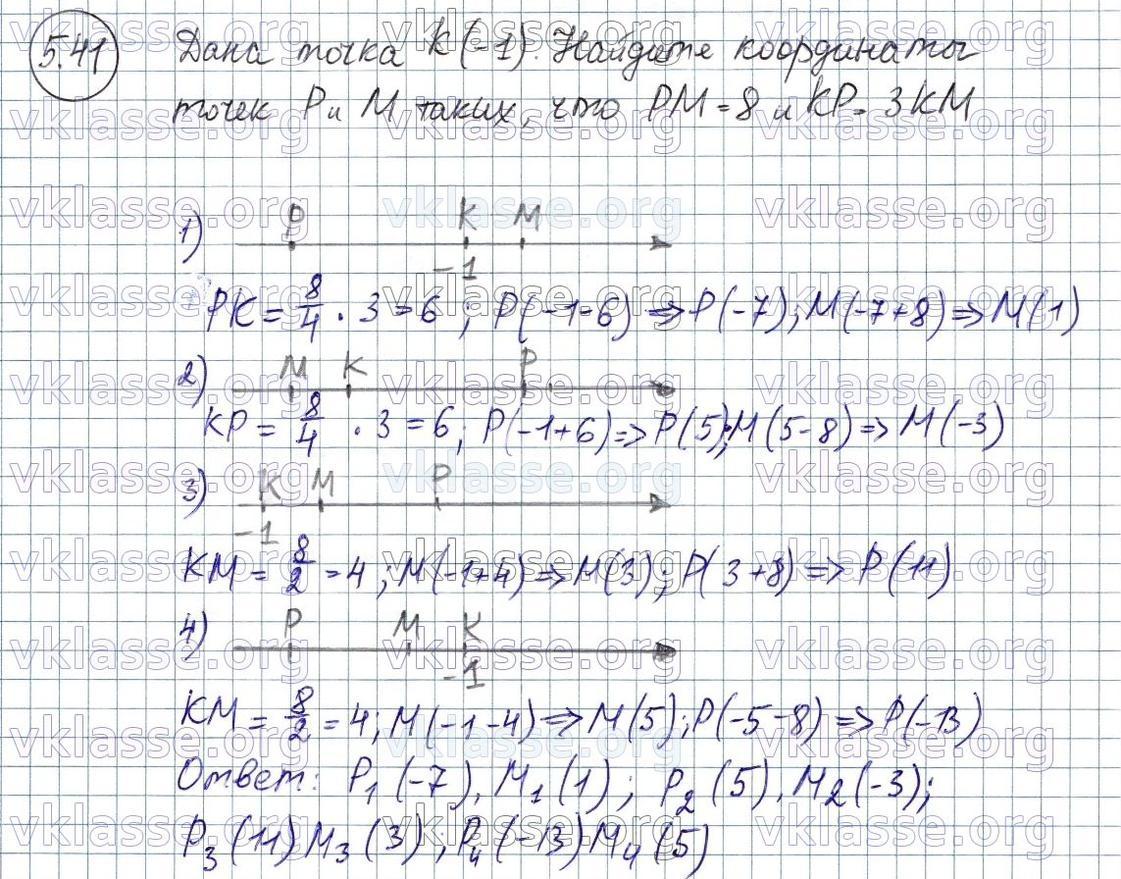 5.41 Дана точка K(-1). Найдите координаты
точек P и M таких, что PM = 8 и KP = 3KM
1) P K M
-1
PK = 8/4 · 3 = 6 ; P(-1-6) => P(-7); M(-7+8) => M(1)
2) M K P
KP = 8/4 · 3 = 6; P(-1+6) => P(5); M(5-8) => M(-3)
3) K M P
-1
KM = 8/2 = 4 ; M(-1+4) => M(3); P(3+8) => P(11)
4) P M K
-1
KM = 8/2 = 4; M(-1-4) => M(5); P(-5-8) => P(-13)
Ответ: P1(-7), M1(1) ; P2(5), M2(-3);
P3(11) M3(3) ; P4(-13) M4(5)
vklasse.org